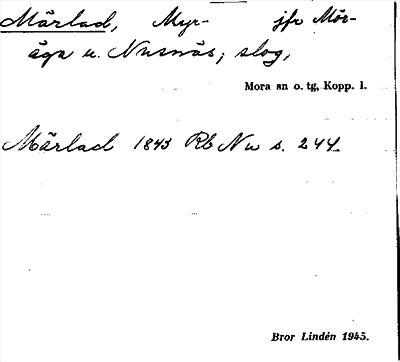 Märlad, Myr- jfr Mör-
äga u. Nusnäs, slog,
Mora sn o. tg, Kopp. l.
Märlad 1843 Rb Nu s. 244
Bror Lindén 1945.